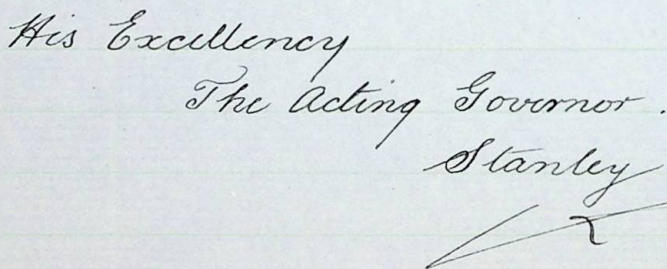 His Excellency
The Acting Governor.
Stanley